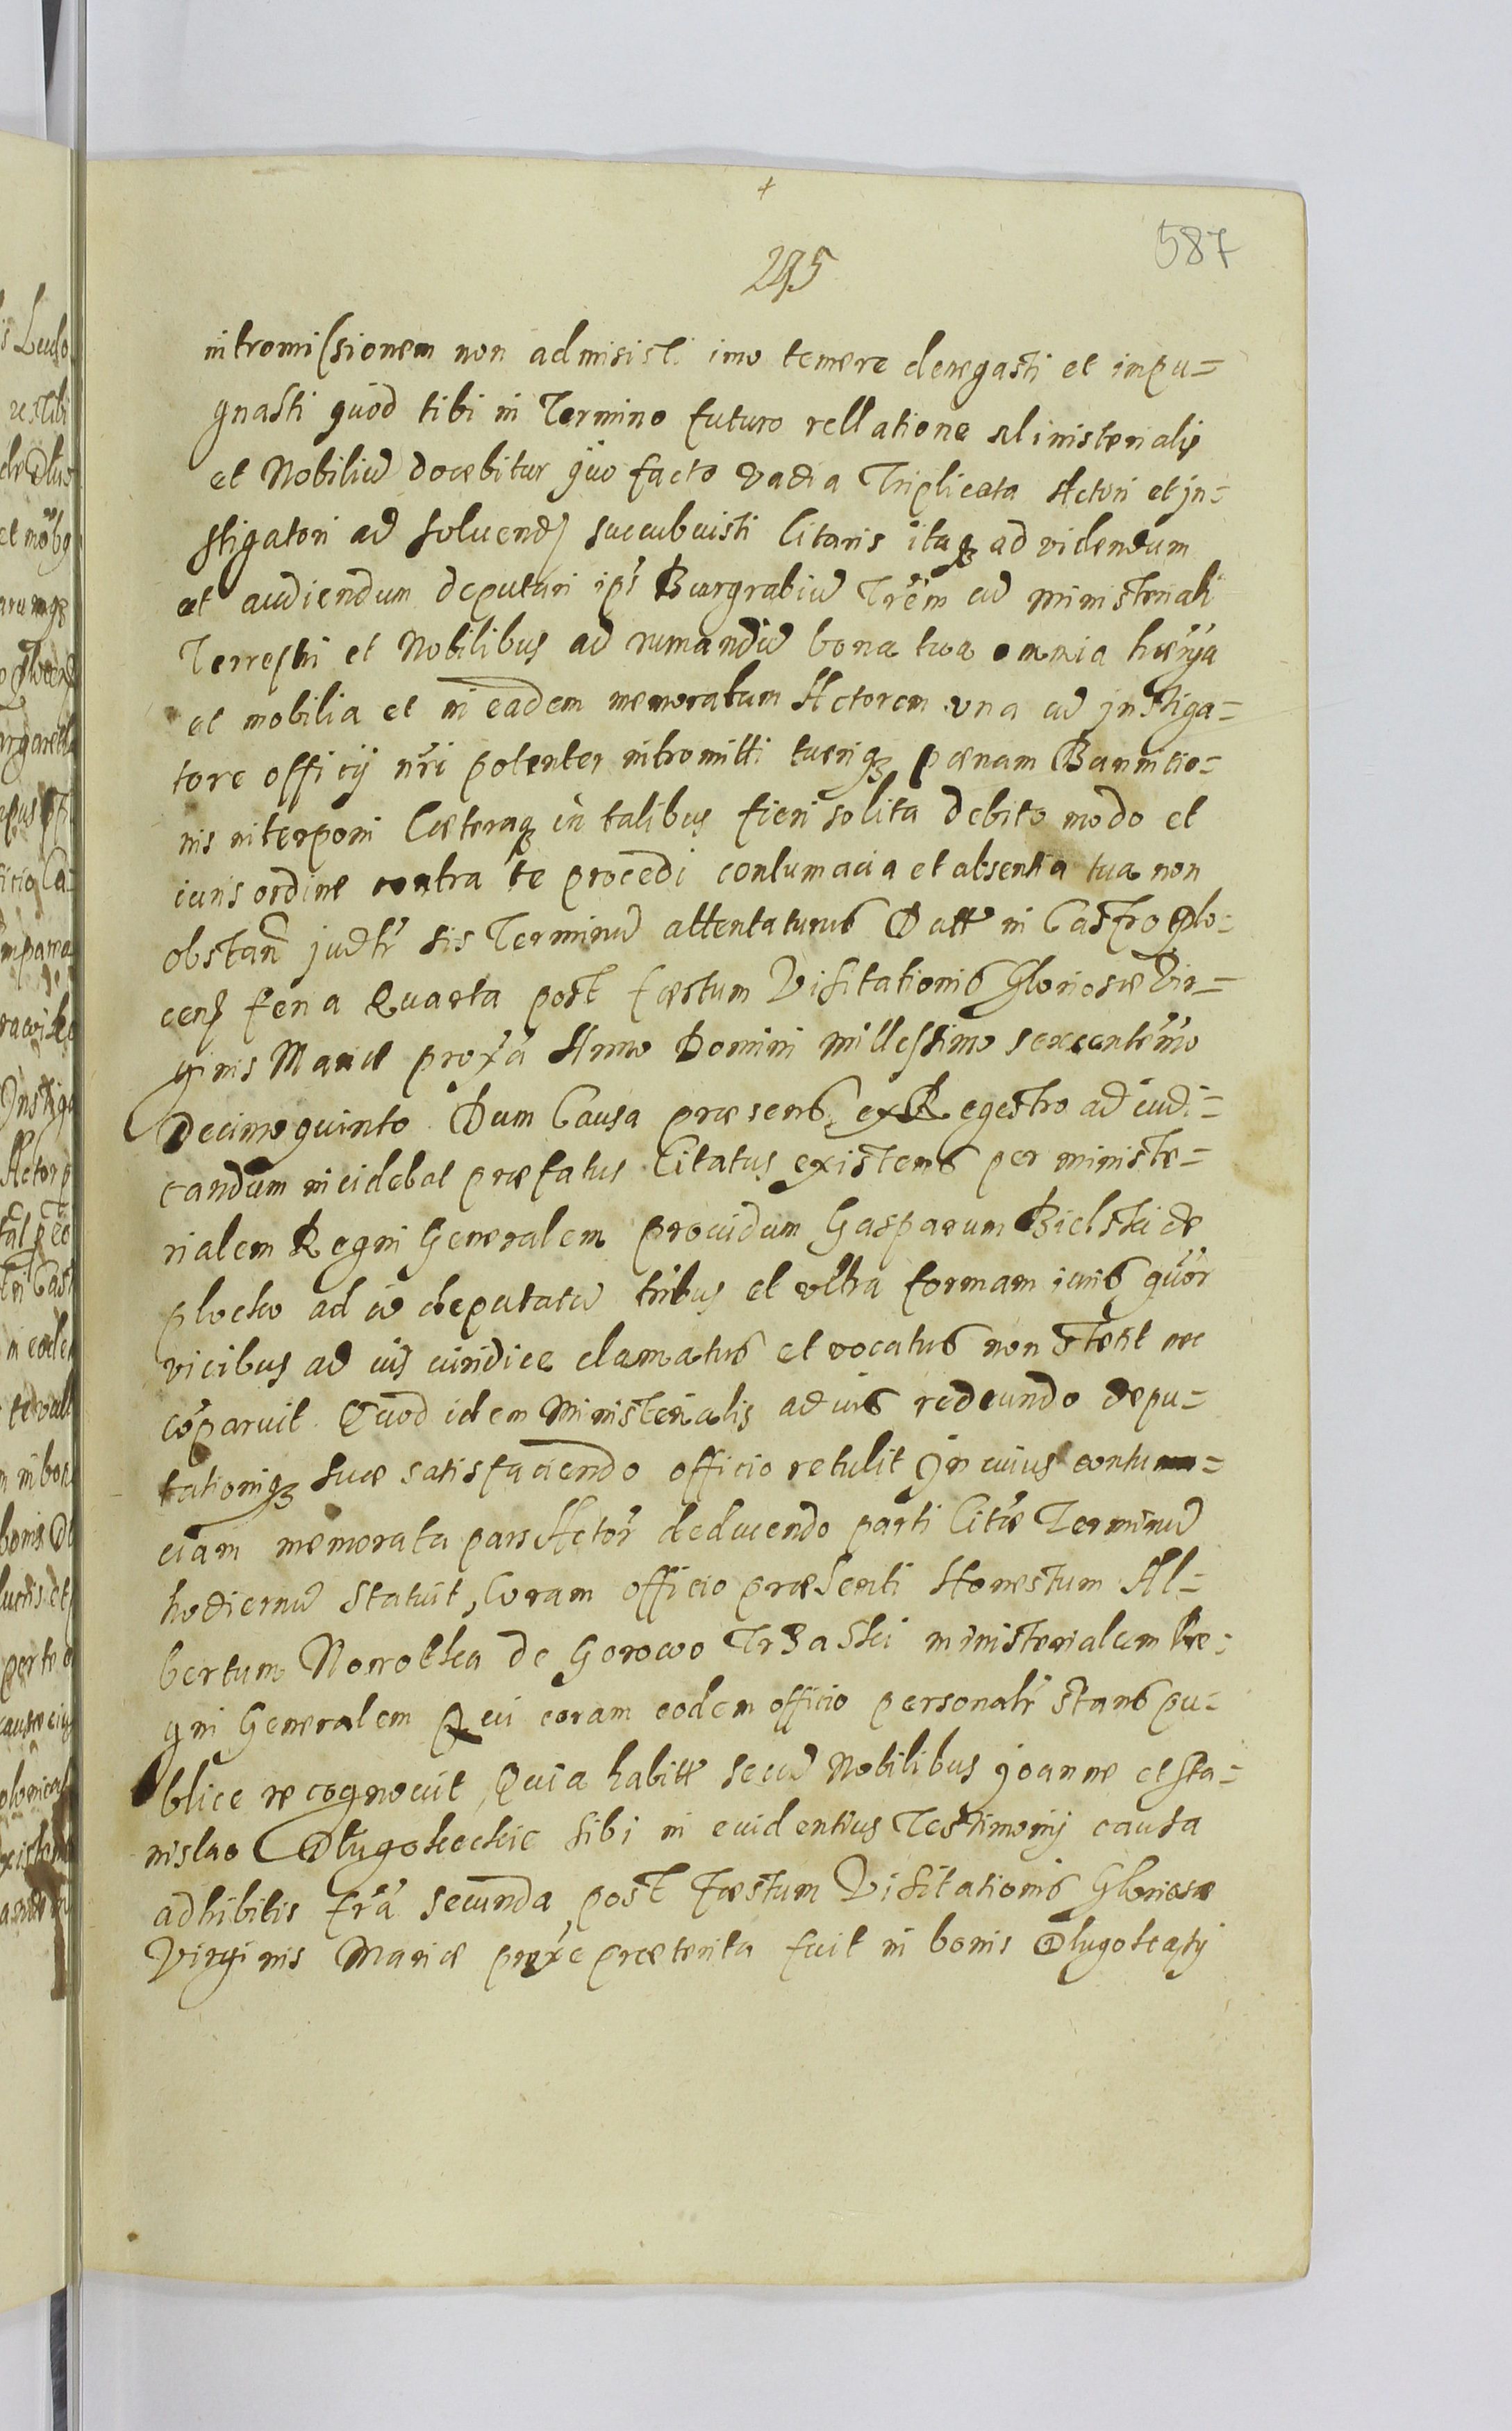 587
295
intromissionem non admisisti imo temere denegasti et impu=
gnasti quod tibi in Termino futuro rellatione Ministerialis
et Nobiliū docebitur quo facto vadia Triplicata Actori et jn=
stigatori ad soluend succubuisti Citaris itaq ad videndum
et audiendum deputari ips Burgrabiū Trem cū ministeriali
Terrestri et Nobilibus ad rumandū bona tua omnia
et mobilia et in eadem memoratum Actorem vna cū jnstiga=
tore officij nri potenter intromitti tuerique pœnam Bannitio=
nis interponi Cæteraq in talibus fieri solita debito modo et
iuris ordine contra te procedi contumacia et absentia tua non
obstan judtr sis Terminū attentaturus Datt in Castro Plo=
cen feria Quarta post festum Visitationis Gloriosæ Vir=
ginis Mariæ proxa Anno Domini millessimo sexcentemo
Decimo quinto Dum Causa præsens ex Regestro ad iudi=
candum incidebat præfatus Citatus existens per ministe=
rialem Regni Generalem prouidum Gasparum Bielski de
plocko ad id deputatū tribus et vltra formam iuris quor
vicibus ad ius iuridice clamatus et vocatus non stetit nec
coparuit Quod idem Ministerialis ad ius redeundo depu=
tationiq suæ satisfaciendo officio retulit Jn cuius contuma=
ciam memorata pars Actor deducendo parti Citæ Terminū
hodiernū Statuit, Coram officio præsenti Honestum Al=
bertum Nowotka de Gorowo Trzaski ministerialem Re=
gni Generalem Qui coram eodem officio personalr stans pu=
blice recognouit, Quia habitt secū Nobilibus joanne et Sta=
nislao Dlugokeckie sibi in euidentius Testimonij causa
adhibitis fra secunda post festum Visitationis Gloriosæ
Virginis Mariæ proxe præterita fuit in bonis Dlugokąty